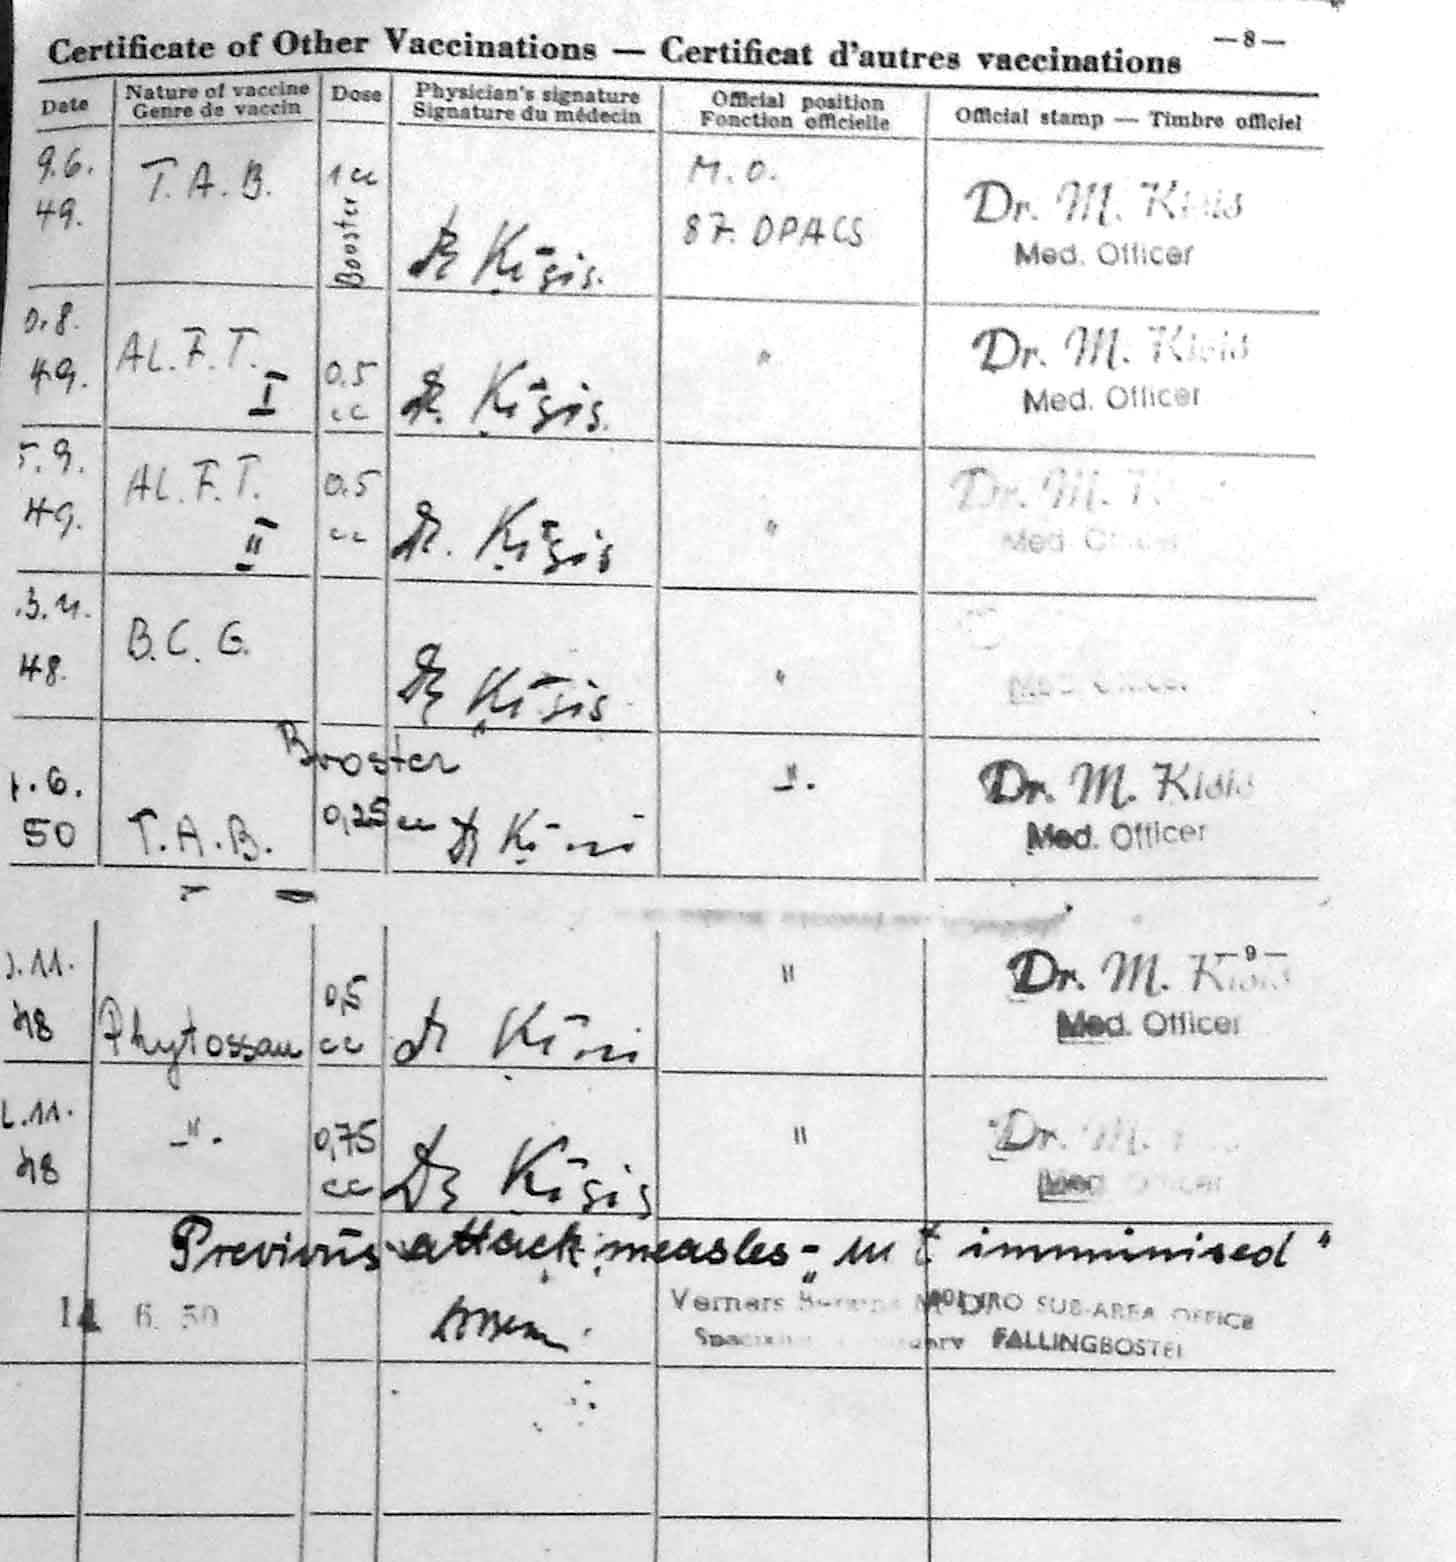 —8—
Certificate of Other Vaccinations — Certificat d'autres vaccinations
Date
Nature of vaccine
Genre de vaccin
Dose
Physician's signature
Signature du médecin
Official position
Fonction officielle
Official stamp — Timbre officiel
9.6.
49.
T.A.B.
1 cc
Booster
Dr Ķīsis.
M.O.
87. DPACS
Dr. M. Kisis
Med. Officer
.8.
49.
AL.F.T.
I
0.5
cc
Dr. Ķīsis.
"
Dr. M. Kisis
Med. Officer
5.9.
49.
AL.F.T.
II
0.5
cc
Dr. Ķīsis
"
Dr. M.
Med. Officer
48.
B.C.G.
Dr Ķīsis
"
Med. Officer
.6.
50
T.A.B.
Booster
0,25 cc
Dr
-"-
Dr. M. Kisis
Med. Officer
—9—
.11.
48
0,5
cc
Dr
"
Dr. M. Kisis
Med. Officer
.11.
48
-"-
0,75
cc
Dr Ķīsis
"
Dr. M.
Med. Officer
Previous attack measles - immunised"
14 6. 50
Verners
IRO SUB-AREA OFFICE
FALLINGBOSTEL